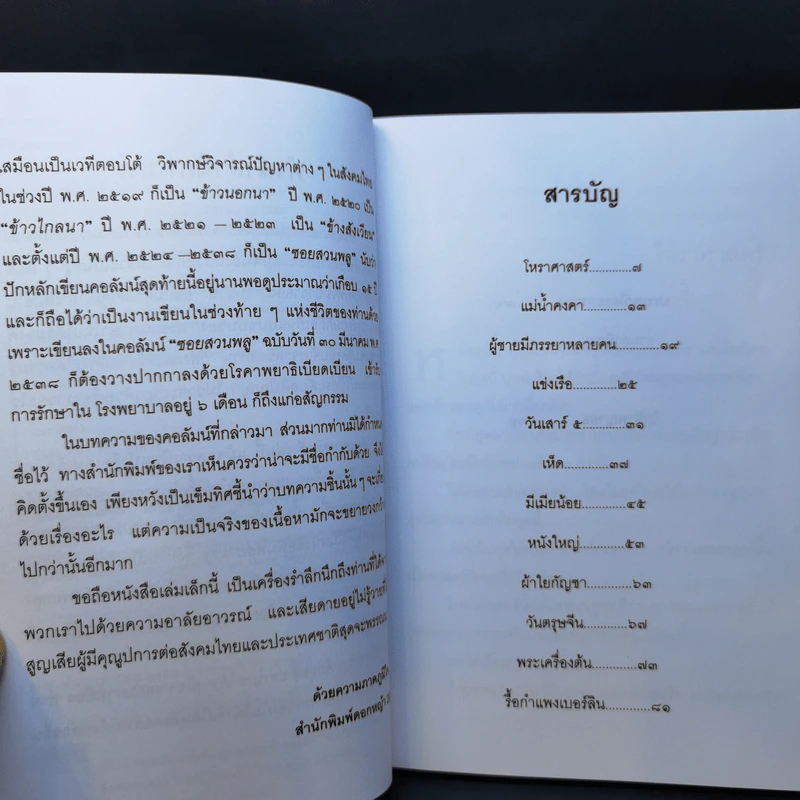 เสมือนเป็นเวทีตอบโต้ วิพากษ์วิจารณ์ปัญหาต่าง ๆ ในสังคมไทย
ในช่วงปี พ.ศ. ๒๕๑๙ ก็เป็น “ข้าวนอกนา” ปี พ.ศ. ๒๕๒๐ เป็น
“ข้าวไกลนา” ปี พ.ศ. ๒๕๒๑ – ๒๕๒๓ เป็น “ข้างสังเวียน”
และตั้งแต่ปี พ.ศ. ๒๕๒๔ – ๒๕๓๘ ก็เป็น “ซอยสวนพลู” นับว่า
ปักหลักเขียนคอลัมน์สุดท้ายนี้อยู่นานพอดูประมาณว่าเกือบ ๑๕ ปี
และก็ถือได้ว่าเป็นงานเขียนในช่วงท้าย ๆ แห่งชีวิตของท่านด้วย
เพราะเขียนลงในคอลัมน์ “ซอยสวนพลู” ฉบับวันที่ ๓๐ มีนาคม พ.ศ.
๒๕๓๘ ก็ต้องวางปากกาลงด้วยโรคาพยาธิเบียดเบียน เข้า
การรักษาใน โรงพยาบาลอยู่ ๖ เดือน ก็ถึงแก่อสัญกรรม
ในบทความของคอลัมน์ที่กล่าวมา ส่วนมากท่านมิได้กำหนด
ชื่อไว้ ทางสำนักพิมพ์ของเราเห็นควรว่าน่าจะมีชื่อกำกับด้วย
คิดตั้งขึ้นเอง เพียงหวังเป็นเข็มทิศชี้นำว่าบทความชิ้นนั้น ๆ จะ
ด้วยเรื่องอะไร แต่ความเป็นจริงของเนื้อหามักจะขยายวงกว้าง
ไปกว่านั้นอีกมาก
ขอถือหนังสือเล่มเล็กนี้ เป็นเครื่องรำลึกนึกถึงท่านที่ได้
พวกเราไปด้วยความอาลัยอาวรณ์ และเสียดายอยู่ไม่รู้วายที่
สูญเสียผู้มีคุณูปการต่อสังคมไทยและประเทศชาติสุดจะ
ด้วยความภาคภูมิใจ
สำนักพิมพ์ดอกหญ้า
สารบัญ
โหราศาสตร์............๗
แม่น้ำคงคา............๑๓
ผู้ชายมีภรรยาหลายคน............๑๙
แข่งเรือ............๒๕
วันเสาร์ ๕............๓๑
เห็ด............๓๗
มีเมียน้อย............๔๕
หนังใหญ่............๕๓
ผ้าใยกัญชา............๖๓
วันตรุษจีน............๖๗
พระเครื่องต้น............๗๓
รื้อกำแพงเบอร์ลิน............๘๑